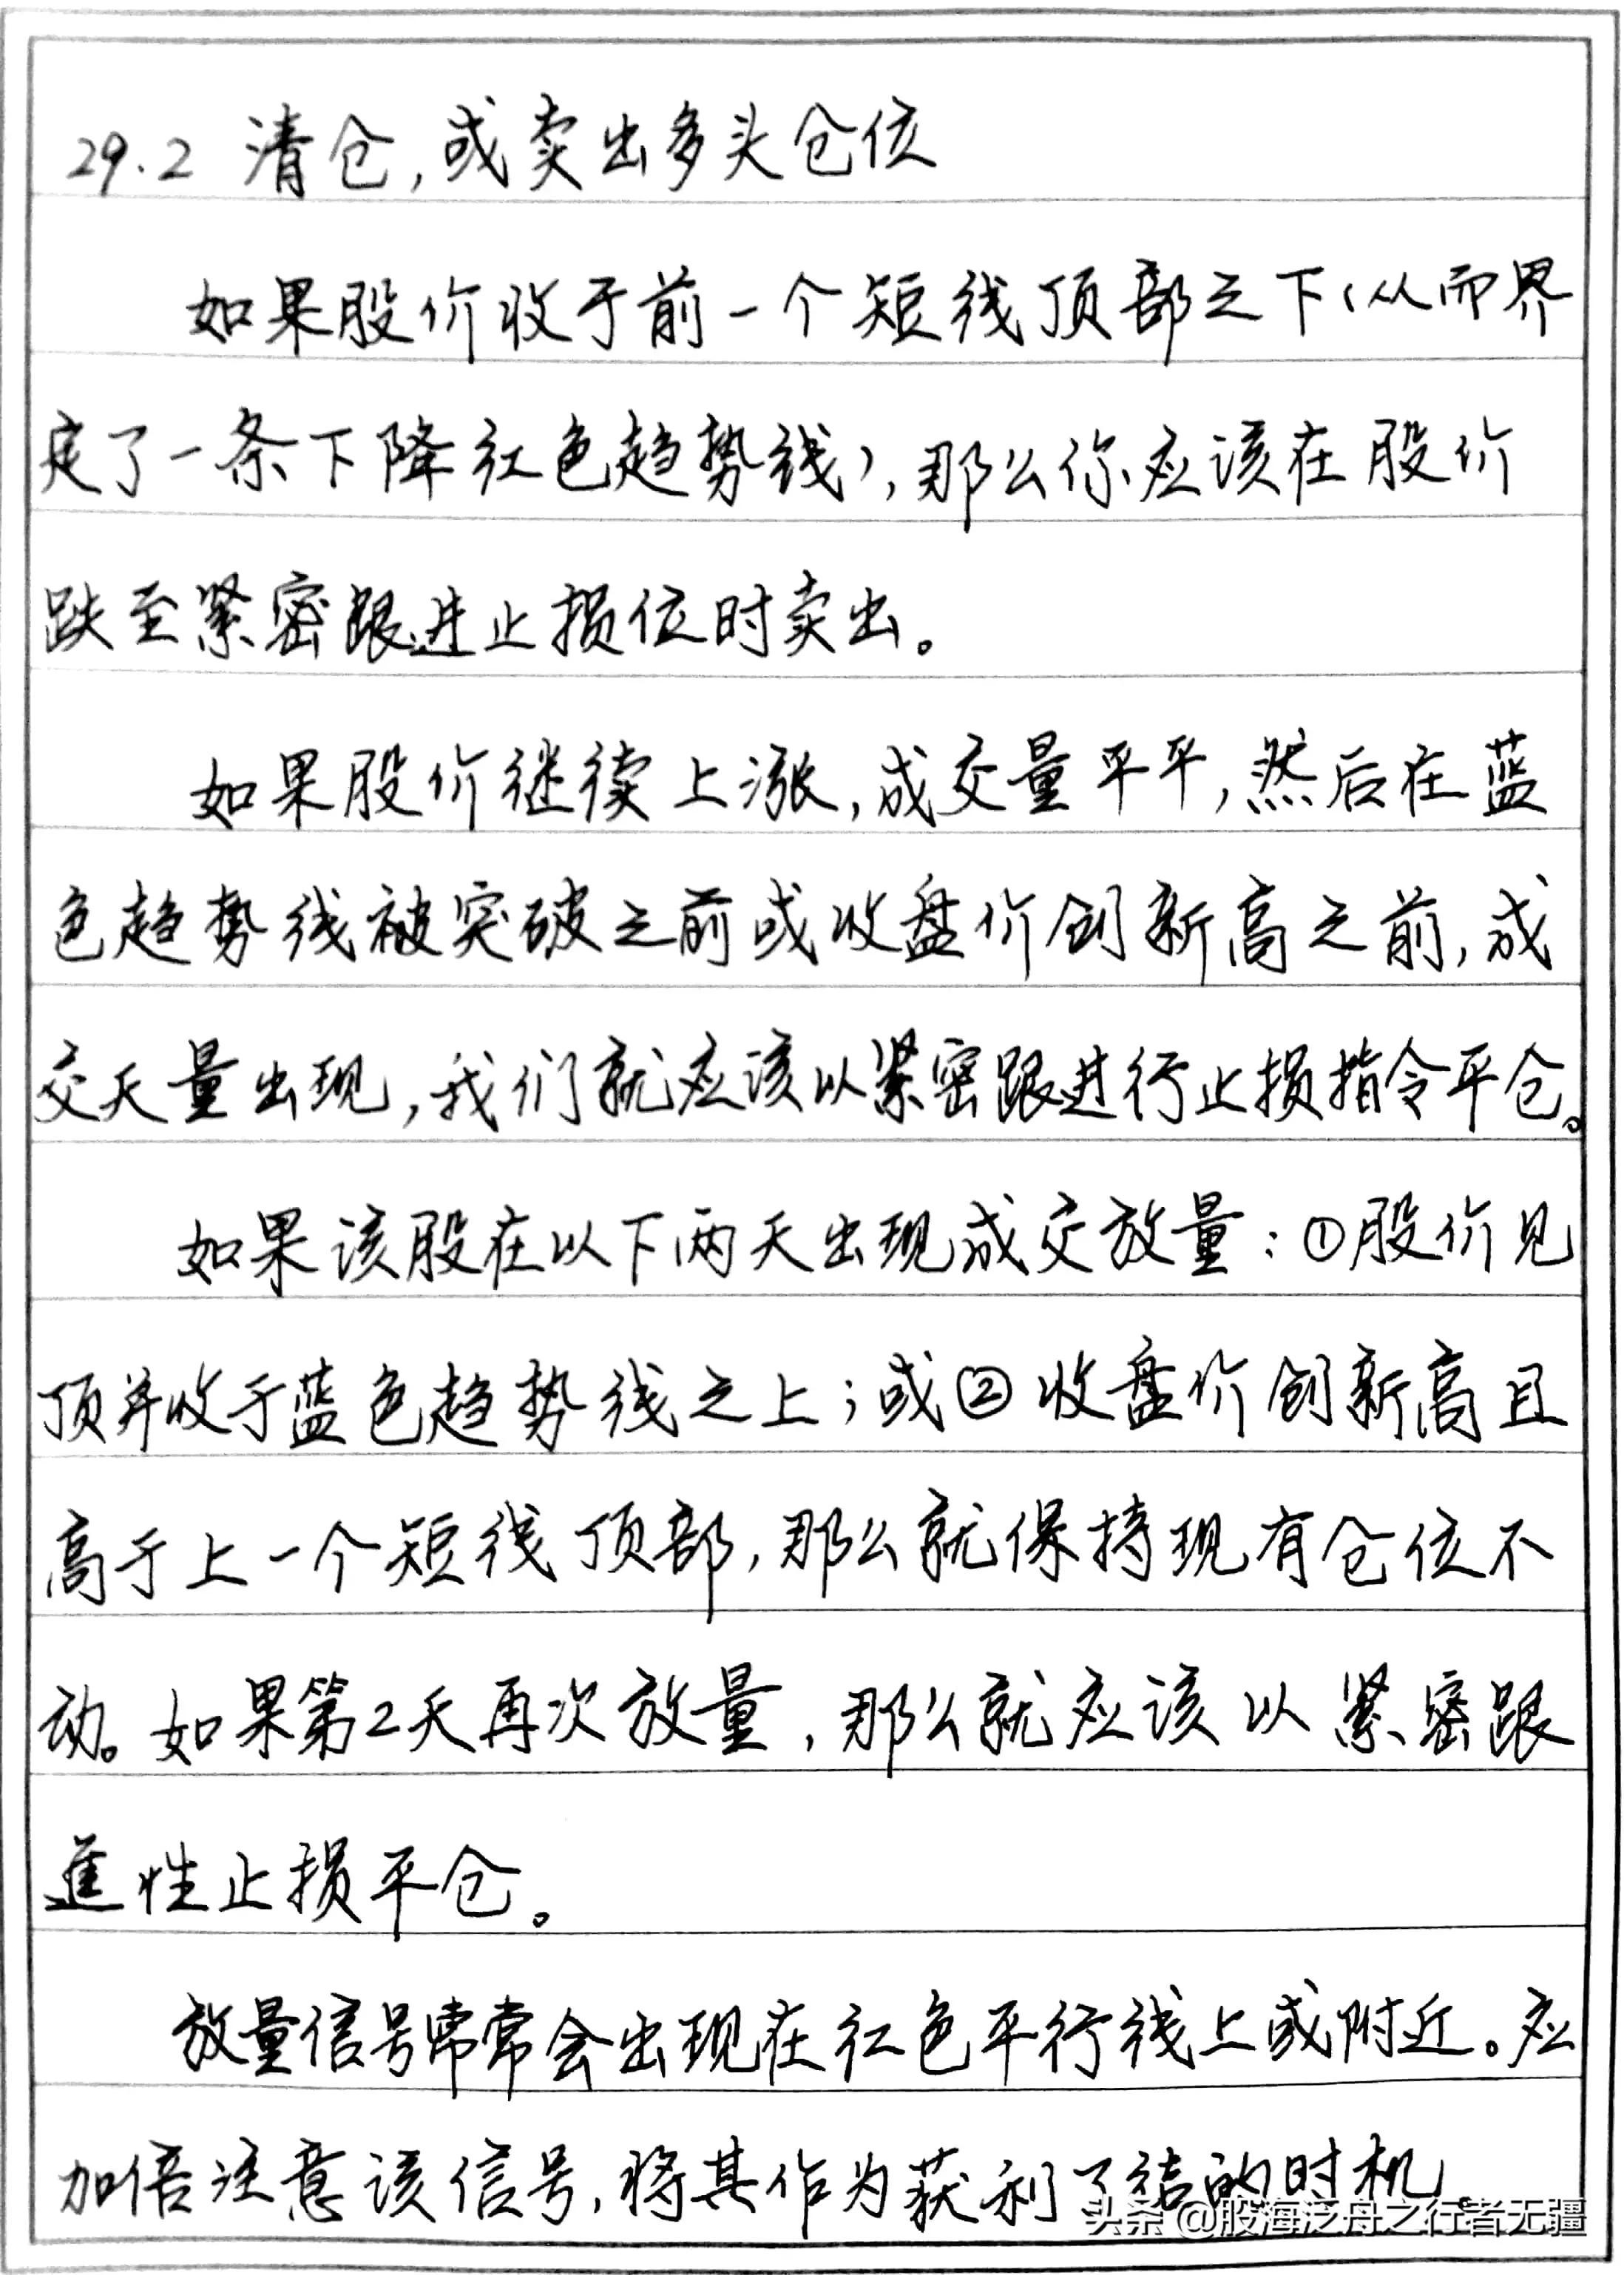 29.2 清仓,或卖出多头仓位
如果股价收于前一个短线顶部之下(从而界
定了一条下降红色趋势线),那么你应该在股价
跌至紧密跟进止损位时卖出。
如果股价继续上涨,成交量平平,然后在蓝
色趋势线被突破之前或收盘价创新高之前,成
交天量出现,我们就应该以紧密跟进行止损指令平仓。
如果该股在以下两天出现成交放量:①股价见
顶并收于蓝色趋势线之上;或②收盘价创新高且
高于上一个短线顶部,那么就保持现有仓位不
动。如果第2天再次放量,那么就应该以紧密跟
进性止损平仓。
放量信号常常会出现在红色平行线上或附近。应
加倍注意该信号,将其作为获利了结的时机。
头条 @股海泛舟之行者无疆